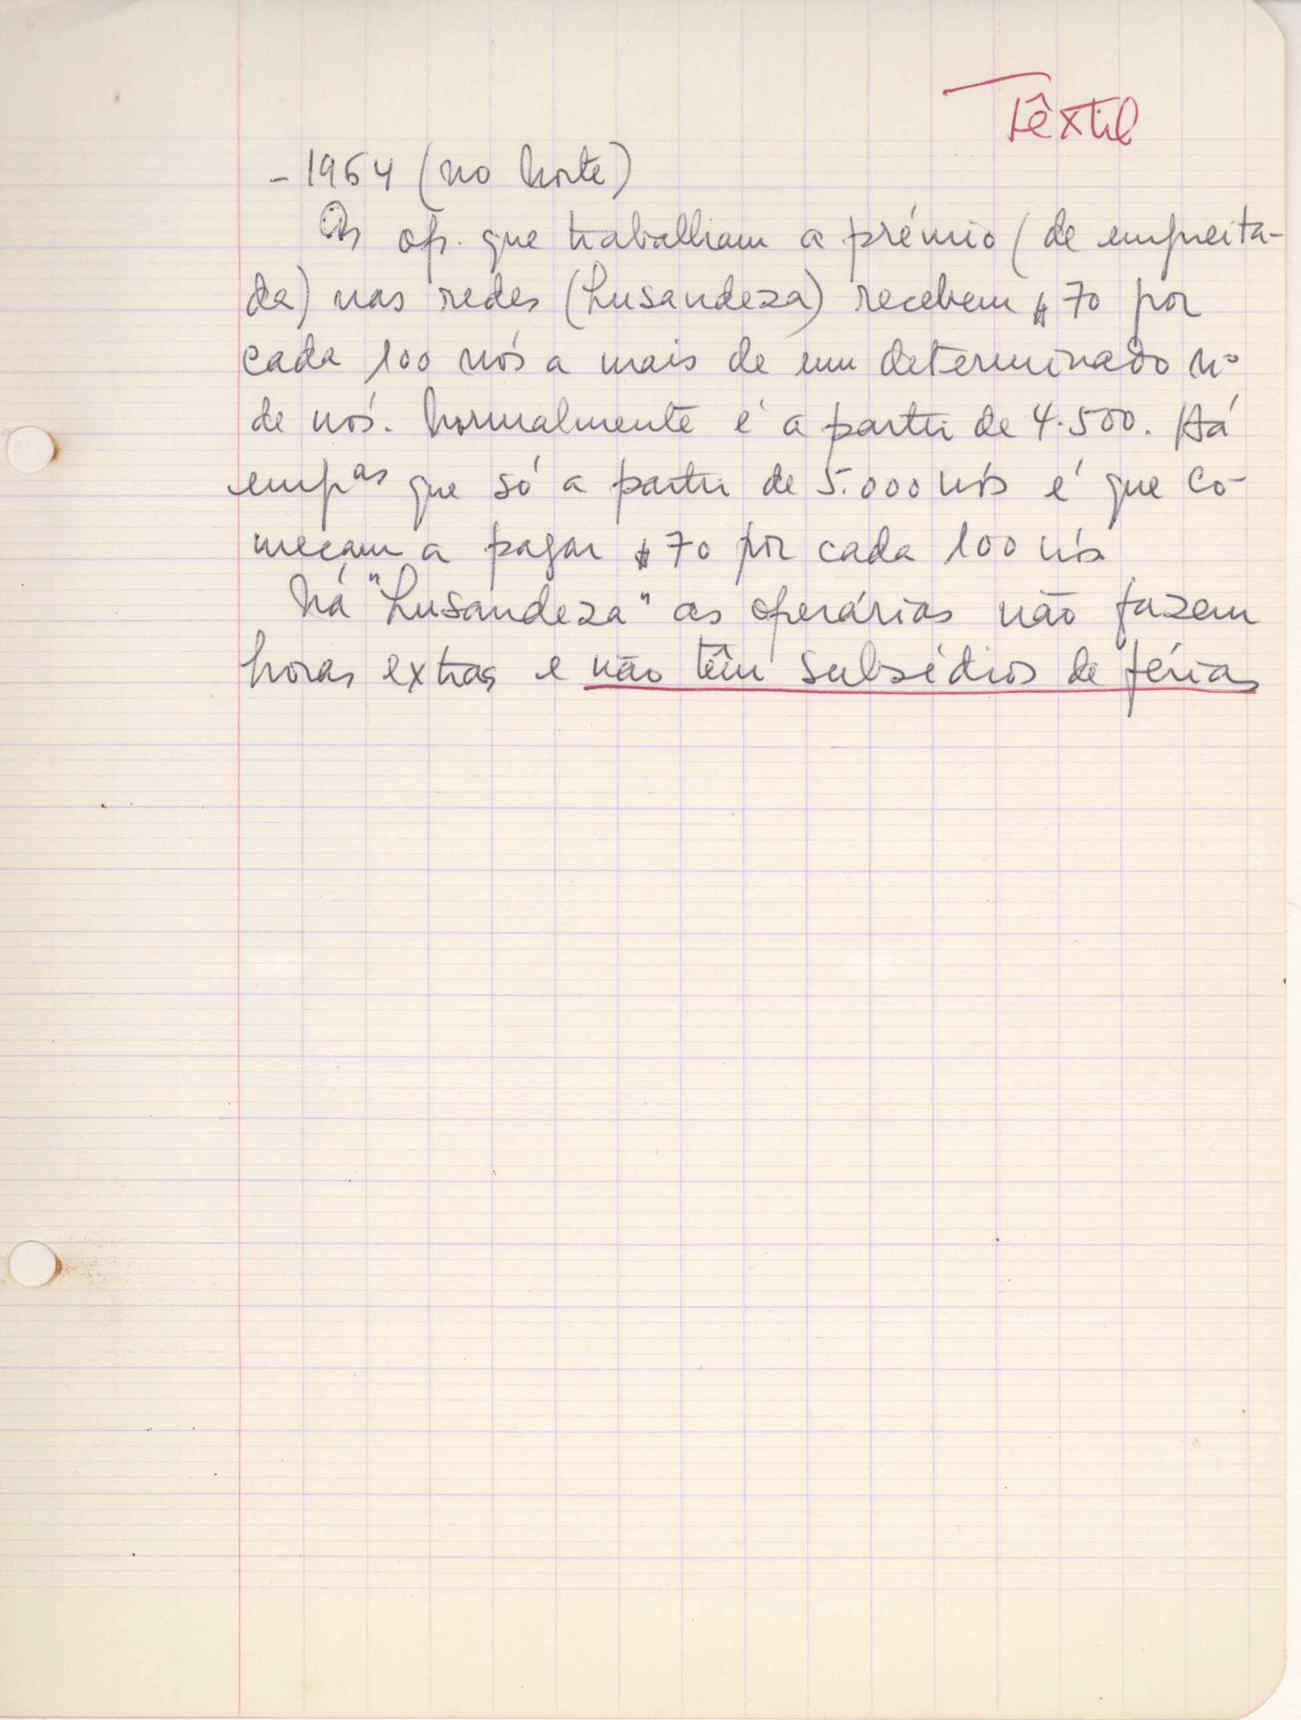 Têxtil
- 1964 (no Norte)
Os op. que trabalham a prémio (de empreita-
da) nas redes (Lusandeza) recebem $70 por
cada 100 nós a mais de um determinado nº
de nós. Normalmente é a partir de 4.500. Há
empas que só a partir de 5.000 nós é que co-
meçam a pagar $70 por cada 100 nós
Ná "Lusandeza" as operárias não fazem
horas extras e não têm subsídios de férias